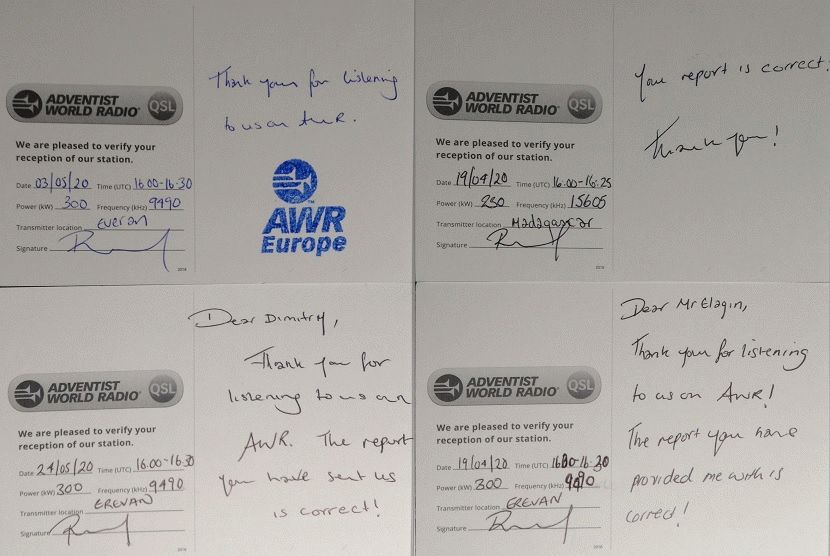 ADVENTIST
WORLD RADIO
QSL
We are pleased to verify your
reception of our station.
Date 03/05/20 Time (UTC) 16:00-16:30
Power (kW) 300 Frequency (kHz) 9490
Transmitter location Everan
Signature
2018
Thank you for listening
to us on AWR.
AWR
Europe
ADVENTIST
WORLD RADIO
QSL
We are pleased to verify your
reception of our station.
Date 19/04/20 Time (UTC) 16:00-16:25
Power (kW) 250 Frequency (kHz) 15605
Transmitter location Madagascar
Signature
2018
Your report is correct!
Thank you!
ADVENTIST
WORLD RADIO
QSL
We are pleased to verify your
reception of our station.
Date 24/05/20 Time (UTC) 16:00-16:30
Power (kW) 300 Frequency (kHz) 9490
Transmitter location EREVAN
Signature
2018
Dear Dimitry,
Thank you for
listening to us on
AWR. The report
you have sent us
is correct!
ADVENTIST
WORLD RADIO
QSL
We are pleased to verify your
reception of our station.
Date 19/04/20 Time (UTC) 1600-16:30
Power (kW) 300 Frequency (kHz) 9490
Transmitter location EREVAN
Signature
2018
Dear Mr Elagin,
Thank you for listening
to us on AWR!
The report you have
provided me with is
correct!